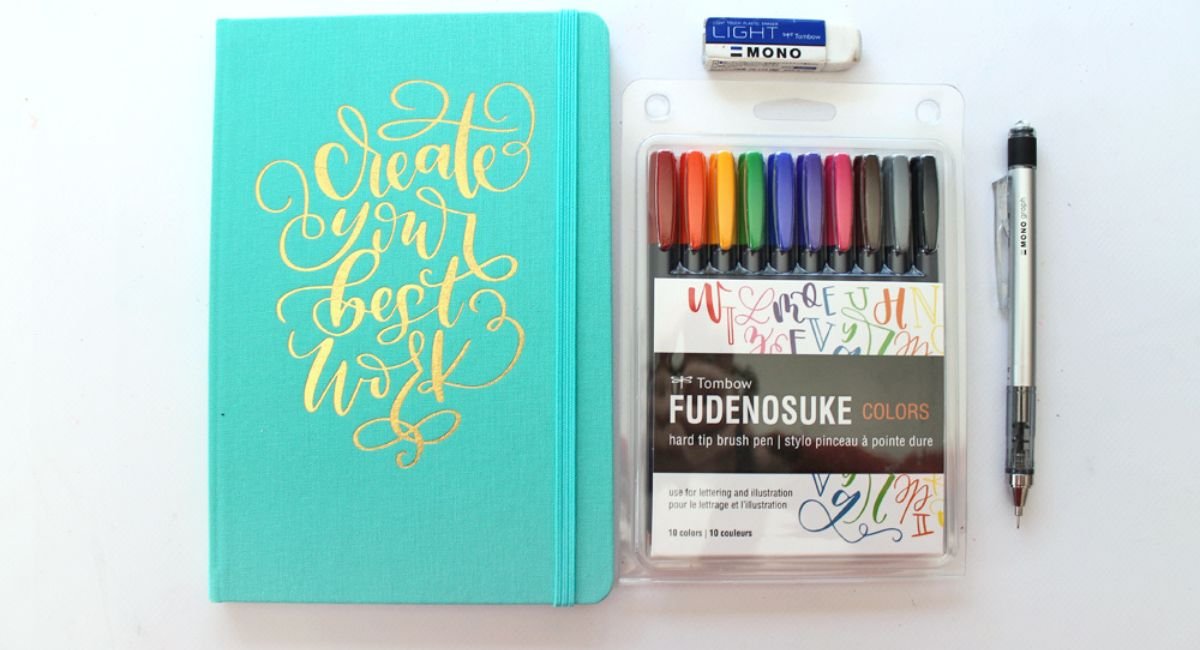 create
your
best
work
LIGHT TOUCH PLASTIC ERASER
LIGHT Tombow
MONO
W L M Q E J H N
Tombow
FUDENOSUKE COLORS
hard tip brush pen | stylo pinceau à pointe dure
use for lettering and illustration
pour le lettrage et l'illustration
10 colors | 10 couleurs
MONO graph